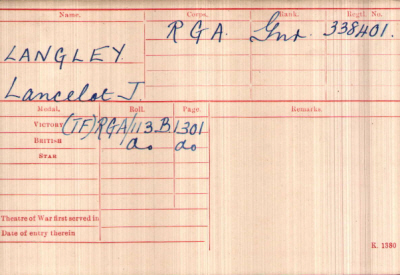 Name. Corps. Rank. Regtl. No.
R G A. Gnr. 338401.
LANGLEY
Lancelot J.
Medal. Roll. Page. Remarks.
VICTORY (TF)RGA/113.B 1301
BRITISH do do
STAR
Theatre of War first served in
Date of entry therein
K. 1380